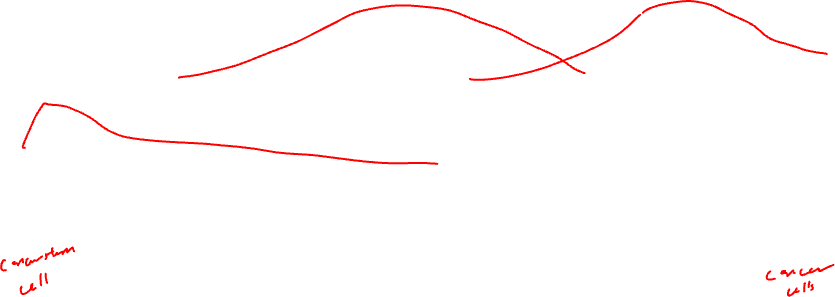 Cancer stem
cell
Cancer
cells